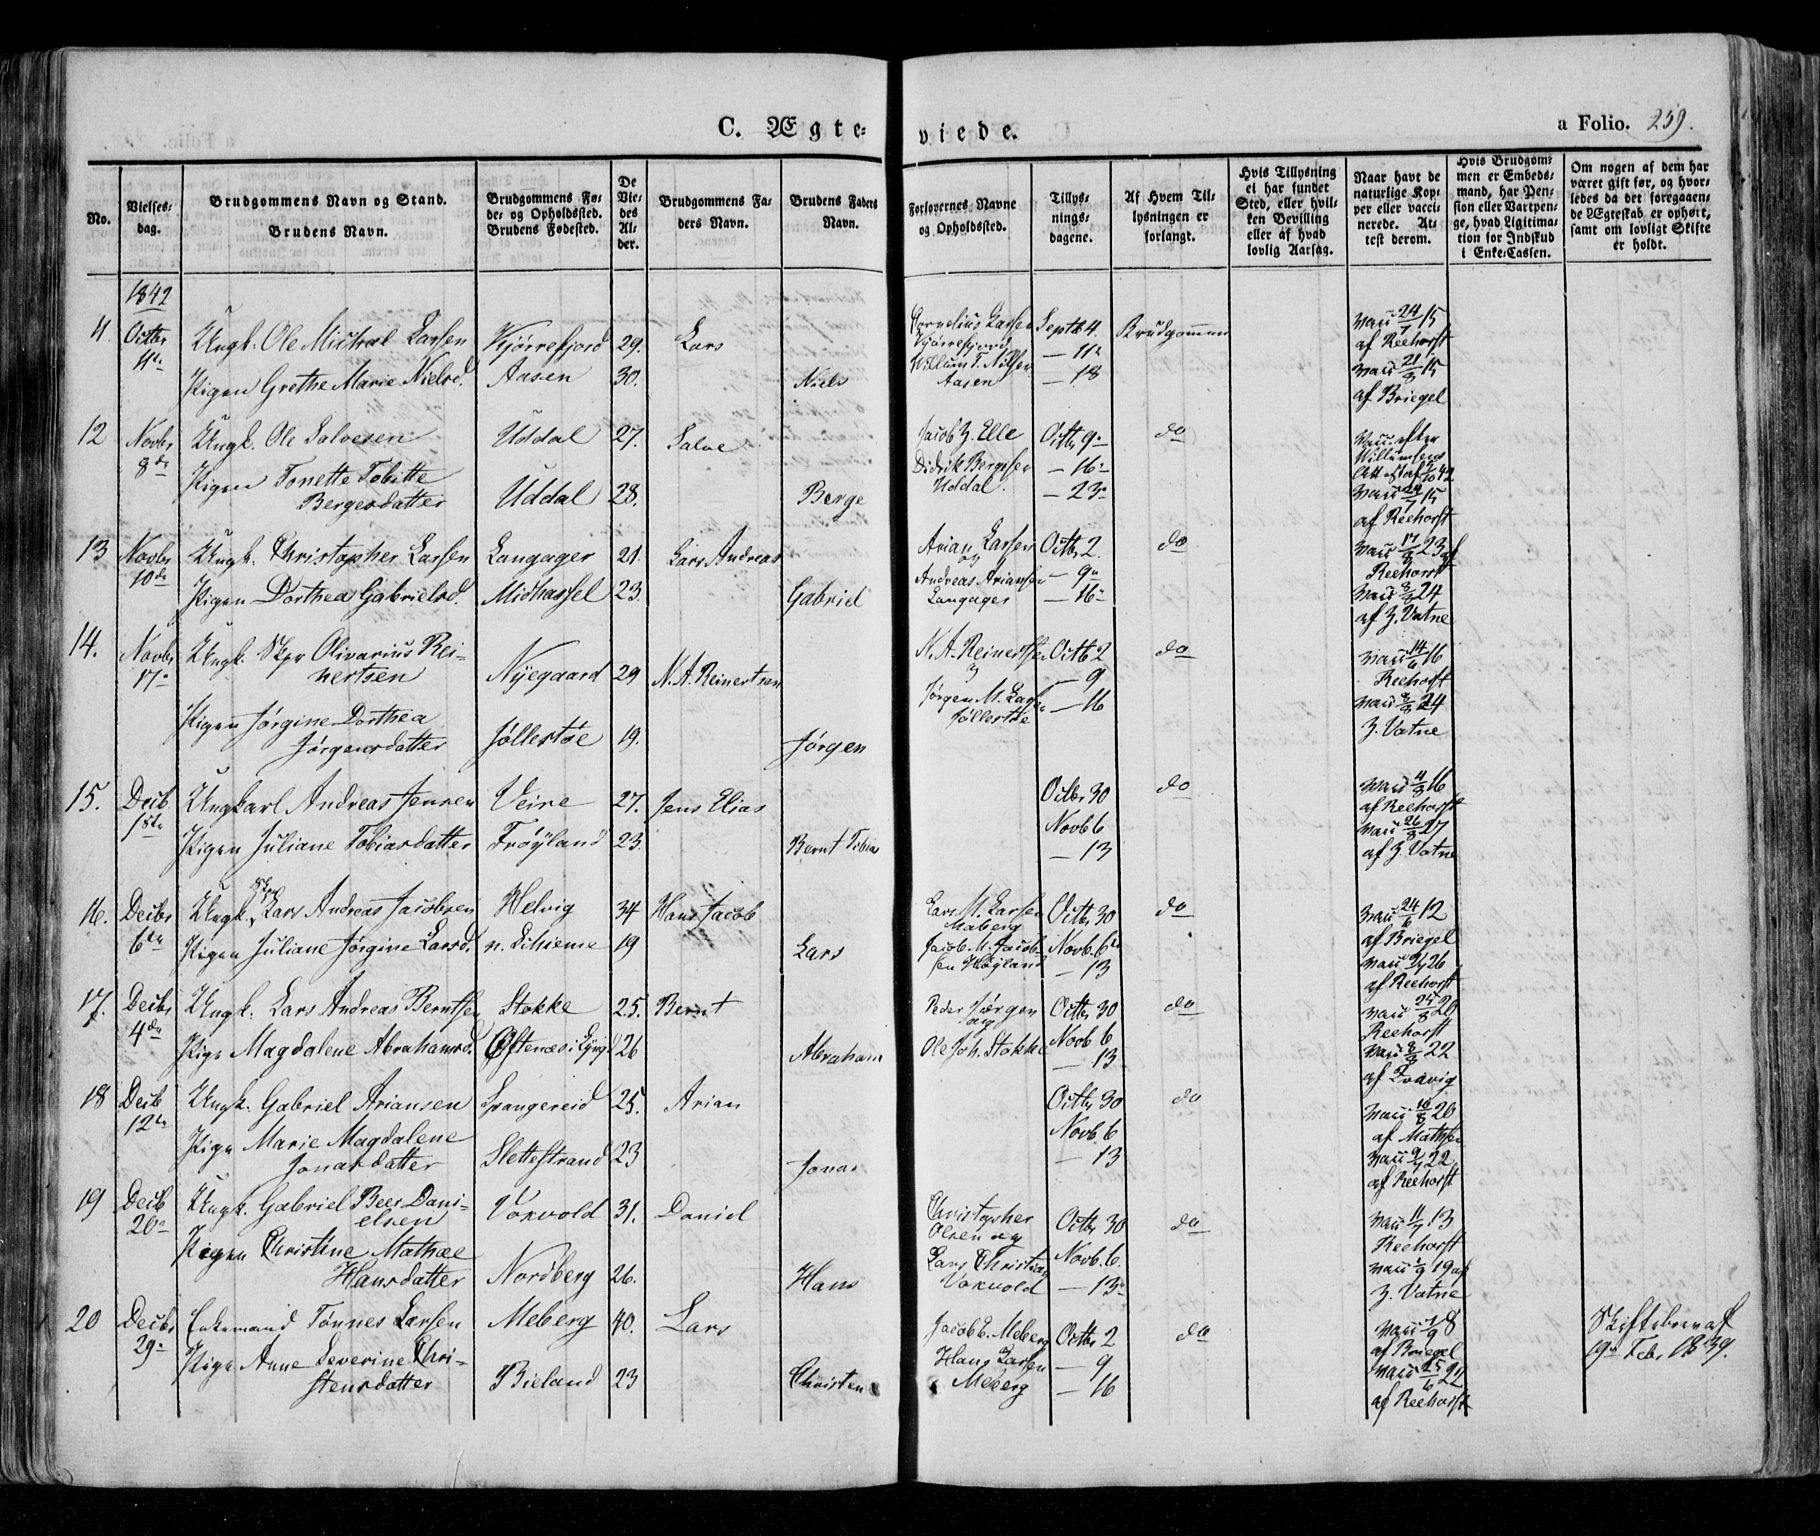 C. Ægte-
viede.
a Folio. 259.
No.
Vielses-
dag.
Brudgommens Navn og Stand.
Brudens Navn.
Brudgommens Fø-
de- og Opholdssted.
Brudens Fødested.
De
Vie-
des
Al-
der.
Brudgommens Fa-
ders Navn.
Brudens Faders
Navn.
Forlovernes Navne
og Opholdssted.
Tillys-
nings-
dagene.
Af Hvem Til-
lysningen er
forlangt.
Hvis Tillysning
ei har fundet
Sted, eller hvil-
ken Bevilling
eller af hvad
lovlig Aarsag.
Naar havt de
naturlige Kop-
per eller vacci-
nerede. At-
test derom.
Hvis Brudgom-
men er Embeds-
mand, har Pen-
sion eller Vartpen-
ge, hvad Ligitima-
tion for Indskud
i Enke-Cassen.
Om nogen af dem har
været gift før, og hvor-
ledes da det foregaaen-
de Ægteskab er ophørt,
samt om lovligt Skifte
er holdt.
1842
11. Octbr 4de Ungk. Ole Michael Larsen Kjørrefjord 29. Lars
Pigen Grethe Marie Nielsd. Aasen 30. Niels
Cornelius Larsen Septb 4 Brudgommen vacc 24/7 15
Kjørrefjord — 11te af Reehorst
Willum T. Nilsen vacc 21/8 15
Aasen — 18 af Briegel
12 Novbr 8de Ungk. Ole Salvesen Uddal 27. Salve
Pigen Tonette Tobitte
Bergesdatter Uddal 28. Berge
Jacob Z. Elle Octbr 9de do vacc. efter
Didrik Bergesen — 16 Willumsens
Uddal. — 23 Att
vacc 24/7 15
af Reehorst
13 Novbr 10de Ungk. Christopher Larsen Langager 21. Lars Andreas
Pigen Dorthea Gabrielsd. Midhassel 23. Gabriel
Arian Larsen Octbr 2. do vacc 17/8 23 af
og — 9 Reehorst
Andreas Ariansen vacc 24
Langager — 16 af Z. Vatne
14. Novbr 17 Ungk. Skpr Olivarius Rei-
nertsen Nyegaard 29 N. A. Reinertsen
Pigen Jørgine Dorthea
Jørgensdatter Jøllestøe 19. Jørgen
N. A. Reinertsen Octb 2 do vacc 14/6 16
— 9 Reehorst
Jørgen M. Larsen — 16 vacc 24
Jøllestøe Z. Vatne
15. Decb 1ste Ungkarl Andreas Jensen Veire 27. Jens Elias
Pigen Juliane Tobiasdatter Frøyland 23. Bernt Tobias
Octbr 30 do vacc 4/8 16
Novb 6 af Reehorst
— 13 vacc 26/8 27
af Z. Vatne
16. Decbr 6te Ungk. Skpr Lars Andreas Jacobsen Helvig 34 Hans Jacob
Pigen Juliane Jørgine Larsd. n. Skieme 19 Lars
Lars M. Larsen Octbr 30 do vacc 24/6 12
Maberg af Briegel
Jacob M. Jacob- Novb. 6te vacc 26
sen Høyland — 13 af Reehorst
17. Decbr 4de Ungk. Lars Andreas Berntsen Stokke 25. Bernt
Pige Magdalene Abrahamsd. Oftenæs i Lyngd 26 Abraham
Peder Jørgen Octbr 30 do vacc 25/8 20
og Novb 6 Reehorst
Ole Joh. Stokke — 13 vacc 22
18 Decb 12te Ungk. Gabriel Ariansen Spangereid 25. Arian
Pige Marie Magdalene
Jonasdatter Slettestrand 23 Jonas
Octbr 30 do vacc 16/8 20
Novb 6 af Mathsen
— 13 vacc 22
af Reehorst
19 Decb 20 Ungk. Gabriel Beer Dani-
elsen Voxvold 31. Daniel
Pigen Christine Mathæe
Hansdatter Nordberg 26. Hans
Christopher Octbr 30 do vacc 11/7 13
Olsen og Reehorst
Lars Christian Novb. 6 vacc 19 af
Voxvold — 13 Z. Vatne
20 Decbr 29 Enkemand Tønnes Larsen Meberg 40. Lars
Pige Anne Severine Chri-
stensdatter Bieland 23 Christen
Jacob L. Meberg Octbr 2 do vacc 8 Skiftebrev af
Hans Larsen — 9 af Briegel 19 Febr 1839.
Meberg — 16 vacc 25/6 22
af Reehorst